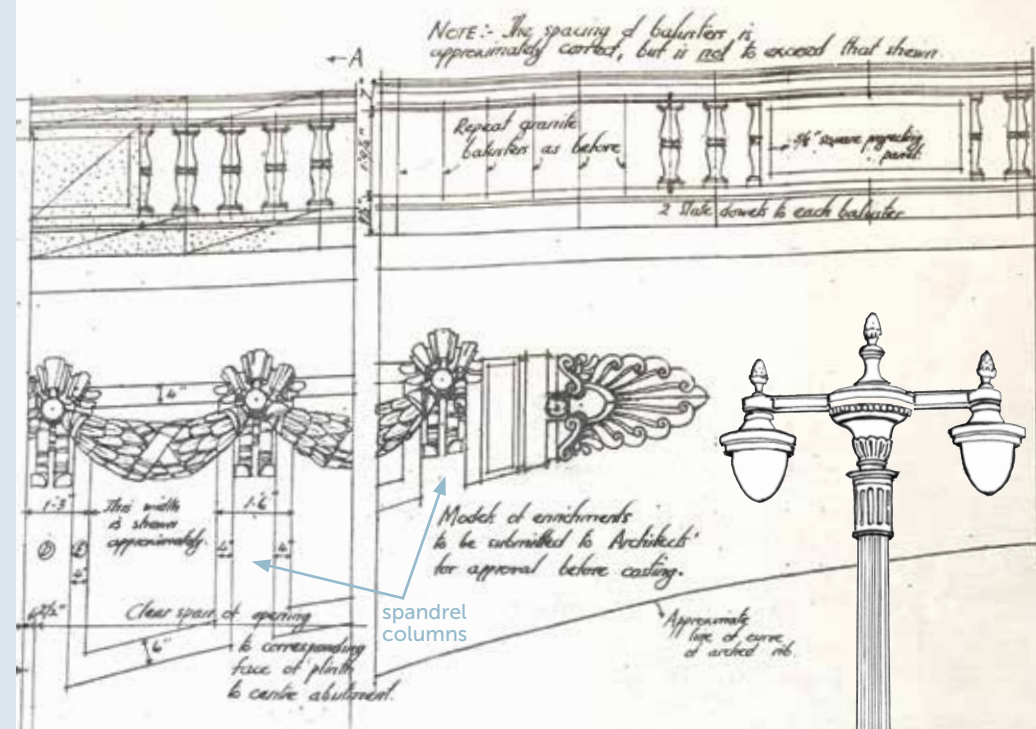 NOTE:- The spacing of balusters is
approximately correct, but is not to exceed that shewn.
←A
Repeat granite
balusters as before
5/8" square projecting
panel.
2 slate dowels to each baluster
4"
1'-3"
This width
is shewn
approximately.
1'-6"
D
E
4"
4"
4"
Models of enrichments
to be submitted to Architects'
for approval before casting.
spandrel
columns
Clear span of opening
to corresponding
face of plinth
to centre abutment.
6"
Approximate
line of curve
of arched rib.